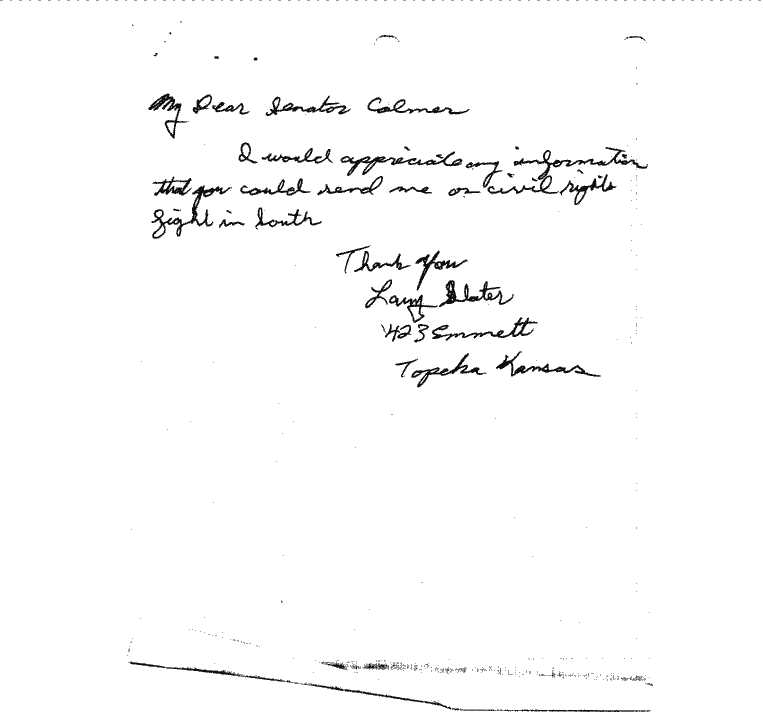 My Dear Senator Colmer
I would appreciate any information
that you could send me on civil rights
fight in South
Thank You
Larry Slater
423 Emmett
Topeka Kansas